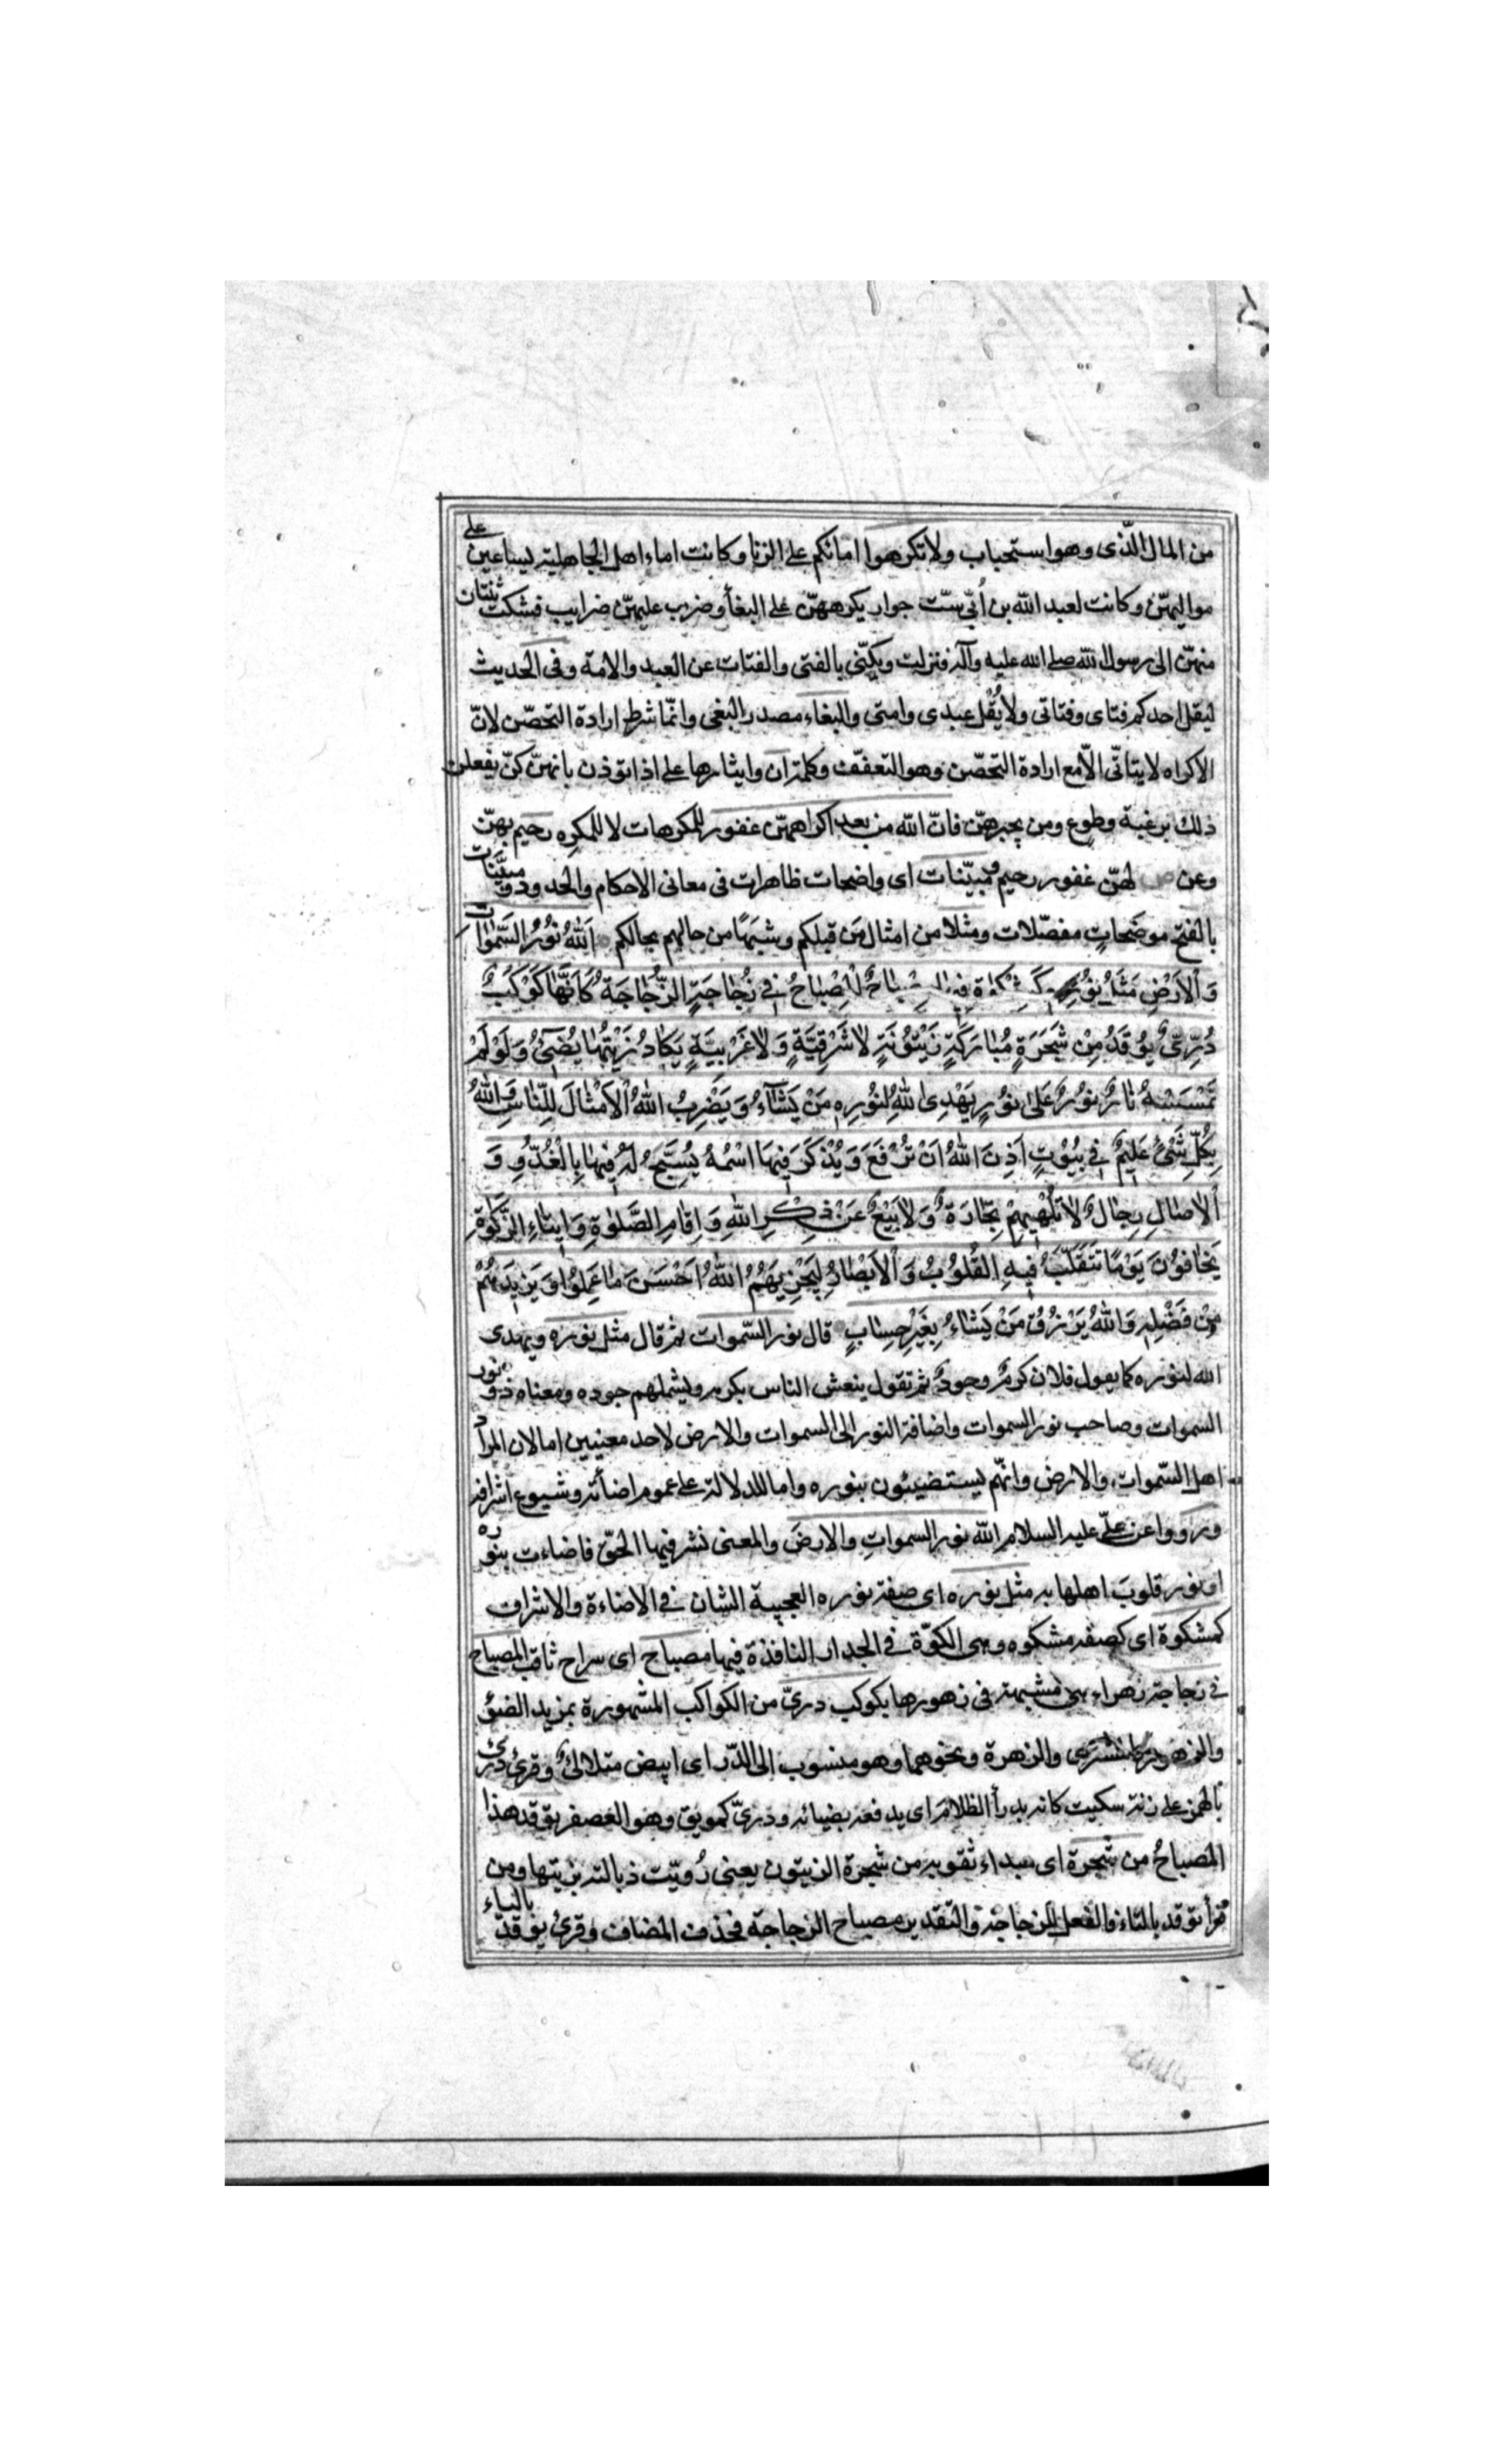 من المال الّذى وهو استحباب ولا تكرهوا امائكم على الزنا وكانت اماء اهل الجاهلية يساعين على
مواليهنّ وكانت لعبد الله بن اُبّى ستّ جوار يكرههنّ على البغأ وضرب عليهنّ ضرايب فشكت ثنتان
منهنّ الى رسول الله صلى الله عليه وآله فنزلت ويكنّى بالفتى والفتات عن العبد والامة وفى الحديث
ليقل احدكم فتاى وفتاتى ولا يُقل عبدى وامتى والبغاء مصدر البغى وانّما شرط ارادة التحصّن لانّ
الاكراه لا يتاتّى الّا مع ارادة التحصّن وهو التعفّف وكلمة ان وايثارها على اذا توذن بانهنّ كنّ يفعلن
ذلك برغبة وطوع ومن يجبرهنّ فانّ الله من بعد اكراههنّ غفور للمكرهات لا للمكرِه رحيم بهنّ
وعن ص لهنّ غفور رحيم مبيّنات اى واضحات ظاهرات فى معانى الاحكام والحدود و مبيَّنات
بالفتح موضَحاتٍ مفصّلات ومثلا من امثال مَن قبلكم وشبَهًا من حالهم بحالكم اَللهُ نُوُرُ السَّمٰوٰاتِ
وَالْاَرْضِ مَثَلُ نوُرِهِ كَمِشْكٰوةٍ فيهٰا مِصْبٰاحٌ اَلْمِصْبٰاحُ فِي زُجٰاجَةٍ اَلزُّجٰاجَةُ كَاَنَّهٰا كَوْكَبٌ
دُرِّىٌّ يوُقَدُ مِنْ شَجَرَةٍ مُبٰارَكَةٍ زَيْتوُنَةٍ لاٰ شَرْقِيَّةٍ وَلاٰ غَرْبِيَّةٍ يَكٰادُ زَيْتُهٰا يُضىۤءُ وَلَوْ لَمْ
تَمْسَسْهُ نٰارٌ نوُرٌ عَلىٰ نوُرٍ يَهْدِى اللهُ لِنوُرِهِ مَنْ يَشٰآءُ وَيَضْرِبُ اللهُ الْاَمْثٰالَ لِلنّٰاسِ وَاللهُ
بِكُلِّ شَىْءٍ عَليمٌ فِي بُيوُتٍ اَذِنَ اللهُ اَنْ تُرْفَعَ وَيُذْكَرَ فيهَا اسْمُهُ يُسَبِّحُ لَهُ فيهٰا بِالْغُدُوِّ وَ
اَلْاٰصٰالِ رِجٰالٌ لاٰ تُلْهيهِمْ تِجٰارَةٌ وَلاٰ بَيْعٌ عَنْ ذِكْرِ اللهِ وَاِقٰامِ الصَّلوٰةِ وَايتٰاءِ الزَّكوٰةِ
يَخٰافوُنَ يَوْمًا تَتَقَلَّبُ فيهِ القُلوُبُ وَالْاَبْصٰارُ لِيَجْزِيَهُمُ اللهُ اَحْسَنَ مٰا عَمِلوُا وَيَزيدَهُمْ
مِنْ فَضْلِهِ وَاللهُ يَرْزُقُ مَنْ يَشٰاءُ بِغَيْرِ حِسٰابٍ قال نور السّموات ثم قال مثل نوره ويهدى
الله لنوره كما يقول فلان كرمٌ وجودٌ ثم تقول ينعش الناس بكرمه ويشملهم جوده ومعناه ذو نور
السموات وصاحب نور السموات واضافة النور الى السموات والارض لاحد معنيين اما لان المراد
اهل السّموات والارض وانهّم يستضيئون بنوره واما للدلالة على عموم اضائته وشيوع اشراقه
ورووا عن علىّ عليه السلام الله نور السمواتِ والارضَ والمعنى نشر فيها الحقّ فاضاءت بنوره
او نور قلوبَ اهلها به مثل نوره اى صفة نوره العجيبة الشان في الاضاءة والاشراق
كمشكوة اى كصفه مشكوه وهى الكوّة في الجدار النافذة فيها مصباح اى سراج ثاقب المصباح
في زجاجة زهراء هى مشبهة فى زهورها بكوكب درىّ من الكواكب المشهورة بمزيد الضؤ
والزهور كالمشترى والزهرة ونحوهما وهو منسوب الى الدّر اى ابيض متلالئٌ وقرئ درئ
بالهمز على زنة سكيت كانه يدرأ الظلامَ اى يدفعه بضيائه ودرىّ كمريق وهو العصفر يوقد هذا
المصباحُ من شجرة اى مبداء ثقوبه من شجرة الزيتون يعنى رُويّت ذبالته بزيتها ومن
قرأ توقد بالتاء فالفعل للزجاجة والتقدير مصباح الزجاجة فحذف المضاف وقرئ يوقد بالياء